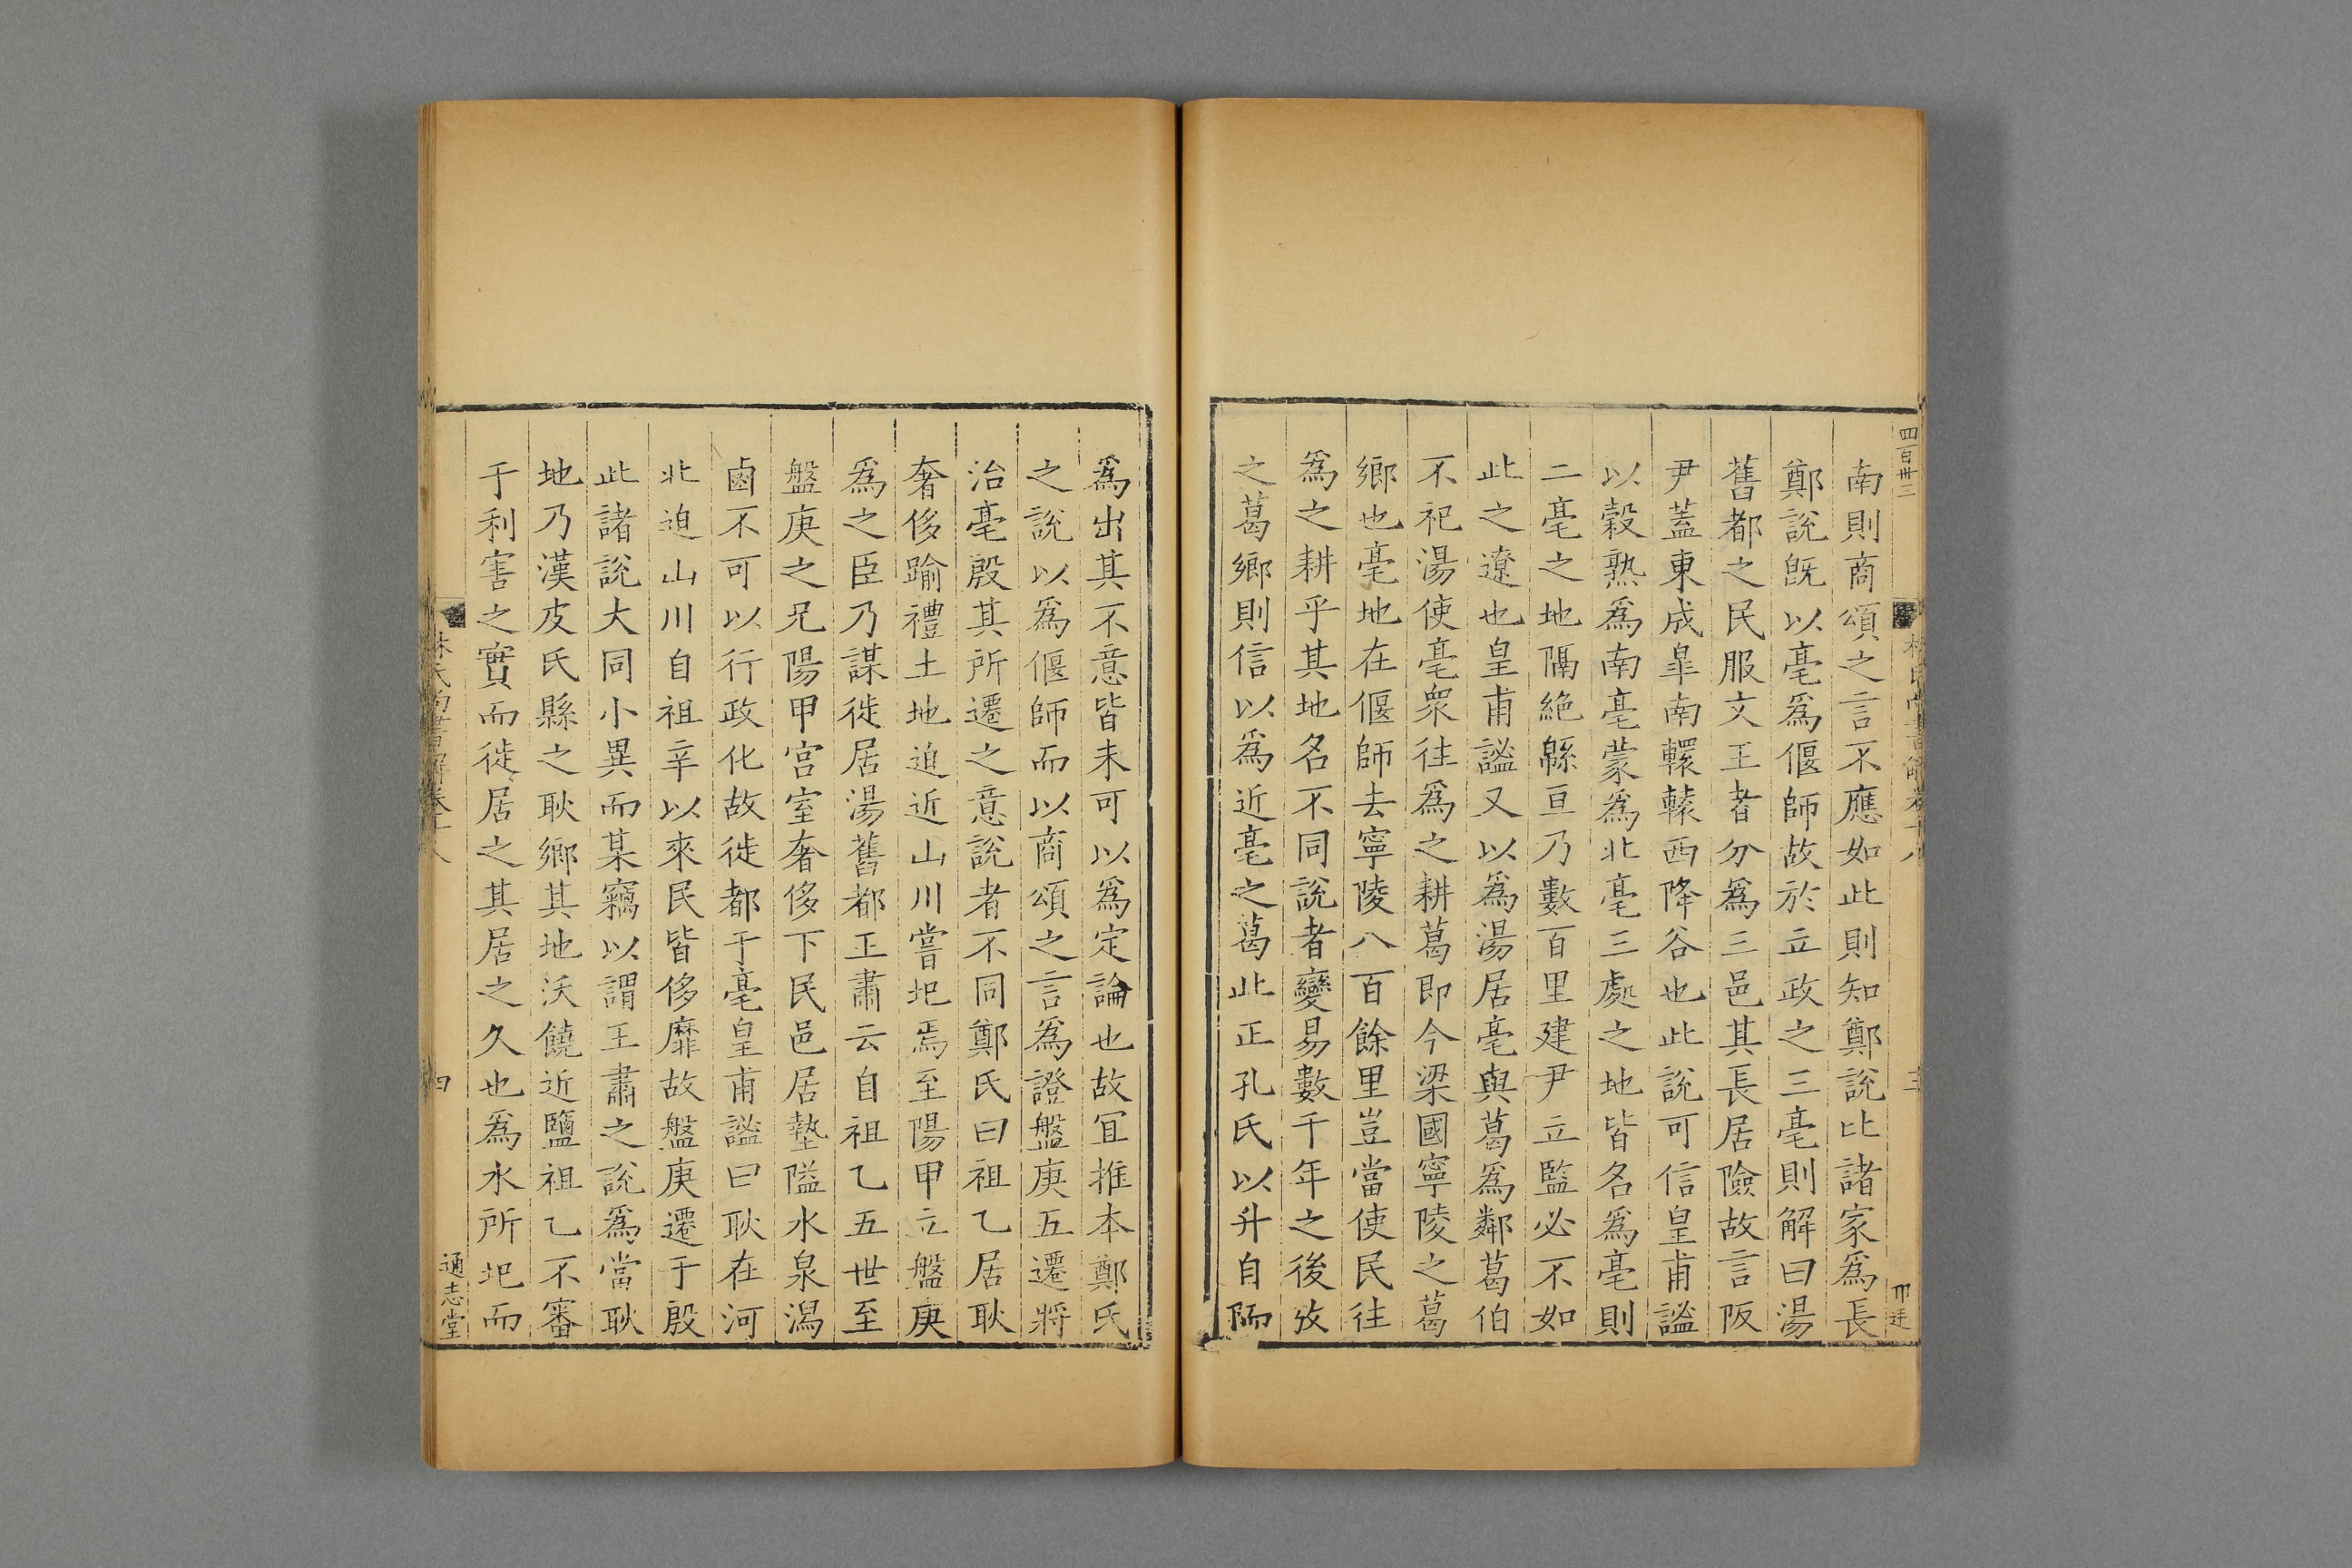 四百卅三
南則商頌之言不應如此則知鄭說比諸家爲長
鄭說旣以亳爲偃師故於立政之三亳則解曰湯
舊都之民服文王者分爲三邑其長居險故言阪
尹蓋東成皐南轘轅西降谷也此說可信皇甫謐
以穀熟爲南亳蒙爲北亳三處之地皆名爲亳則
二亳之地隔絶緜亘乃數百里建尹立監必不如
此之遼也皇甫謐又以爲湯居亳與葛爲鄰葛伯
不祀湯使亳衆往爲之耕葛即今梁國寧陵之葛
鄉也亳地在偃師去寧陵八百餘里豈當使民往
爲之耕乎其地名不同說者變易數千年之後攷
之葛鄉則信以爲近亳之葛此正孔氏以升自陑
爲出其不意皆未可以爲定論也故冝推本鄭氏
之說以爲偃師而以商頌之言爲證盤庚五遷將
治亳殷其所遷之意說者不同鄭氏曰祖乙居耿
奢侈踰禮土地迫近山川嘗圯焉至陽甲立盤庚
爲之臣乃謀徙居湯舊都王肅云自祖乙五世至
盤庚之兄陽甲宫室奢侈下民邑居墊隘水泉潟
鹵不可以行政化故徙都于亳皇甫謐曰耿在河
北迫山川自祖辛以來民皆侈靡故盤庚遷于殷
此諸說大同小異而某竊以謂王肅之說爲當耿
地乃漢皮氏縣之耿鄉其地沃饒近鹽祖乙不審
于利害之實而徙居之其居之久也爲水所圯而
林氏尚書解卷十八
四
通志堂